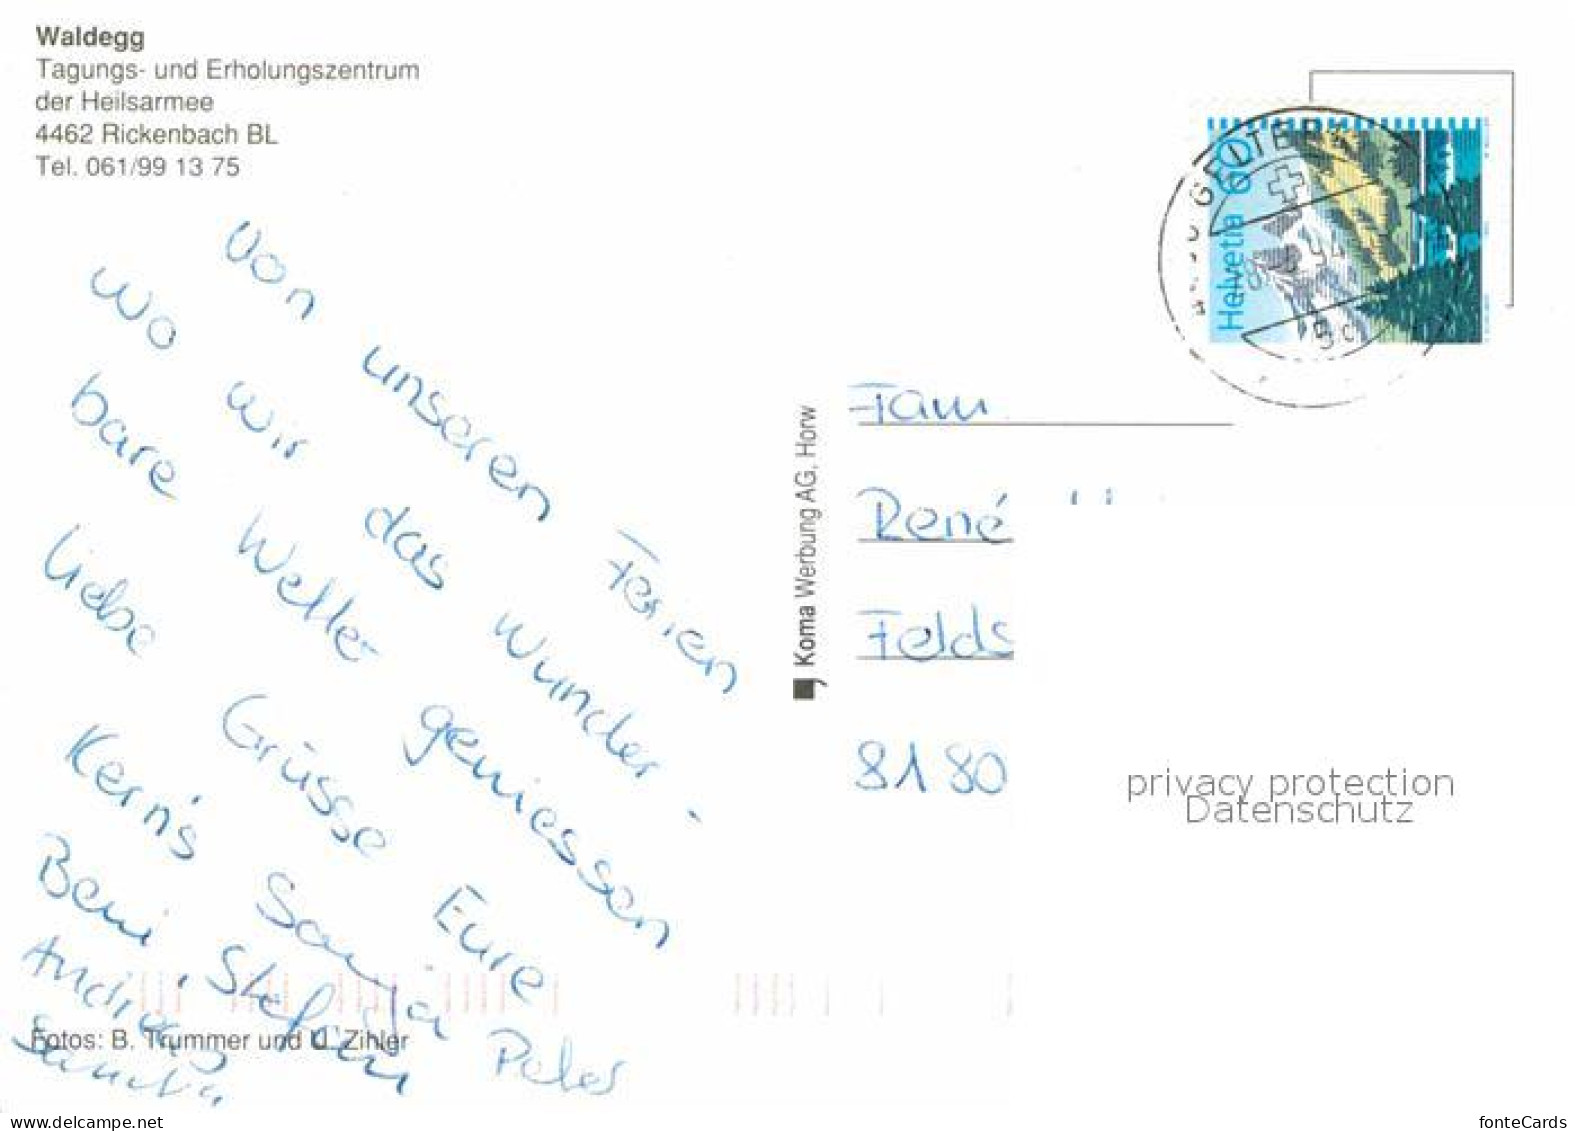 Waldegg
Tagungs- und Erholungszentrum
der Heilsarmee
4462 Rickenbach BL
Tel. 061/99 13 75
Von unseren Ferien
wo wir das wunder-
bare Wetter geniessen
Liebe Grüsse Eure
Kern's Sonja Peter
Beni, Stefan
Andreas
Fotos: B. Trummer und U. Zihler
Koma Werbung AG, Horw
Helvetia 60
GELTERK
Fam
René
Felds
8180
privacy protection
Datenschutz
www.delcampe.net
fonteCards